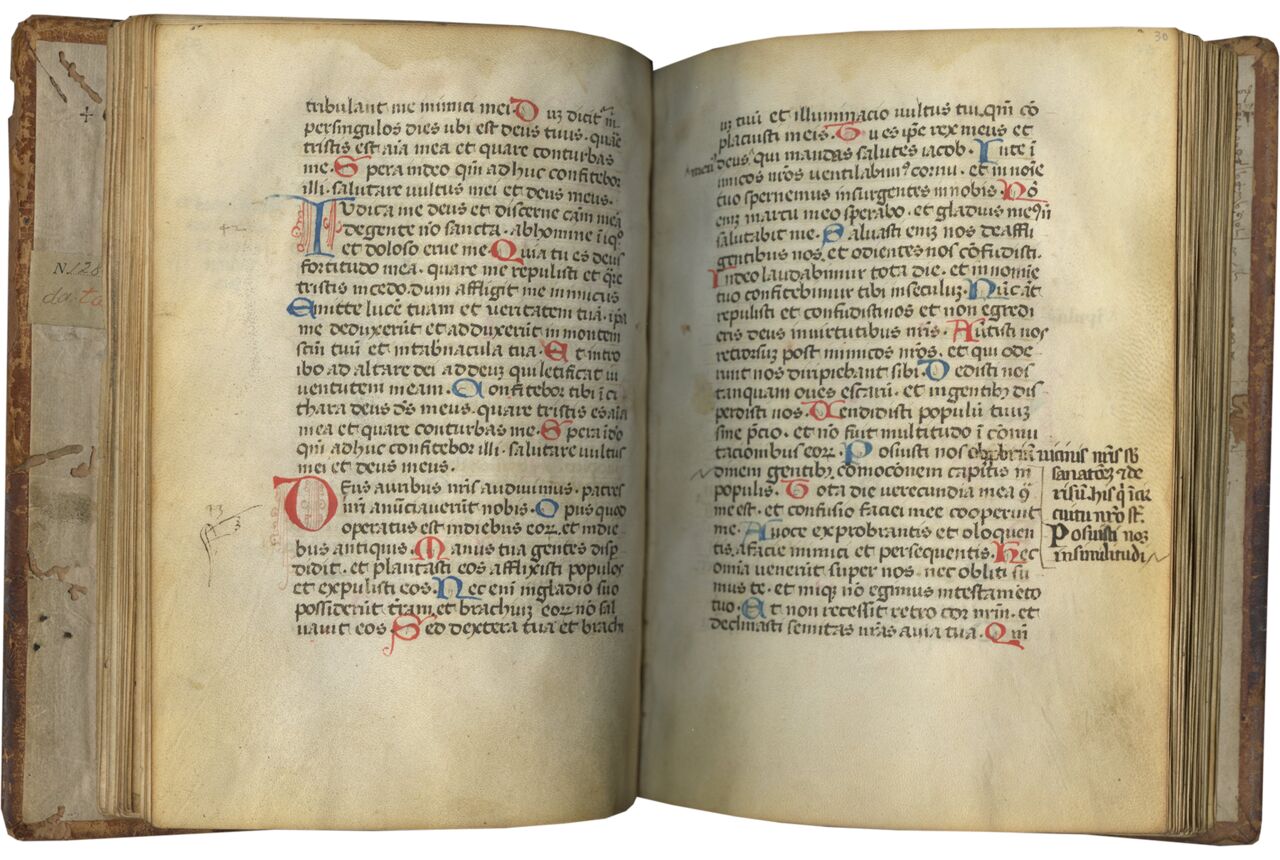 tribulant me inimici mei. Dũ dicit̃ m̃
persingulos dies ubi est deus tuus. quãe
tristis est aĩa mea et quare conturbas
me. Spera indeo qm̃ adhuc confitebor
illi. salutare vultus mei et deus meus.
Iudica me deus et discerne cãm meã
degente nõ sancta. abhomine ĩiq̃o
et doloso erue me. Quia tu es deus
fortitudo mea. quare me repulisti et q̃re
tristis incedo. dum affligit me inimicus
Emitte lucẽ tuam et veritatem tuã. ip̃a
me deduxerũt et adduxerũt in montem
sc̃m tuũ et intab̃nacula tua. Et intro
ibo ad altare dei addeuz qui letificat iu
ventutem meam. Confitebor tibi ĩ ci
thara deus d̃s meus. quare tristis es aĩa
mea et quare conturbas me. Spera ĩdeo
qm̃ adhuc confitebor illi. salutare vultus
mei et deus meus.
42
Deus auribus nr̃is audivimus. patres
nr̃i anũciaverũt nobis. Opus quod
operatus est indiebus eoꝝ. et indie
bus antiquis. Manus tua gentes disp
didit. et plantasti eos afflixisti populos
et expulisti eos. Nec eni ingladio suo
possiderũt terram et brachiuz eoꝝ nõ sal
vavit eos. Sed dextera tua et brachi
43
N. 128
data
30
uz tuũ et illuminacio vultus tui. qm̃ cõ
placuisti meis. Tu es ip̃e rex meus et
meus deus. qui mandas salutes iacob. In te ĩ
imicos nr̃os ventilabim⁹ cornu. et in noĩe
tuo spernemus insurgentes innobis. Nõ
eniz inarcu meo sperabo. et gladius me⁹ nõ
salvabit me. Salvasti eniz nos deaffli
gentibus nos. et odientes nos cõfudisti.
Indeo laudabimur tota die. et innomie
tuo confitebimur tibi inseculuz. Nũc aũt
repulisti et confudisti nos et non egredi
eris deus invirtutibus nr̃is. Avertisti nos
retrorsuz post inimicos nr̃os. et qui ode
runt nos diripiebant sibi. Dedisti nos
tanquam oves escarũ. et ingentibꝫ dis
perdisti nos. Vendidisti populũ tuuz
sine p̃cio. et nõ fuit multitudo ĩ cõmu
tacionibus eoꝝ. Posuisti nos obprobriũ vicinis nr̃is sb̃
sanatõez ⁊ de
risũ his q̃ ĩ cir
cuitu nr̃o st̃.
Posuisti noz
insimilitudi
dinem gentibꝫ comocõnem capitis in
populis. Tota die verecundia mea 9̃
me est. et confusio faciei mee cooperuit
me. Avoce exprobrantis et oloquen
tis. afacie inimici et persequentis. Hec
omia venerũt super nos. nec obliti su
mus te. et iniq̃ nõ egimus intestam̃eto
tuo. Et non recessit retro cor nr̃m. et
declinasti semitas nr̃as avia tua. Qm̃